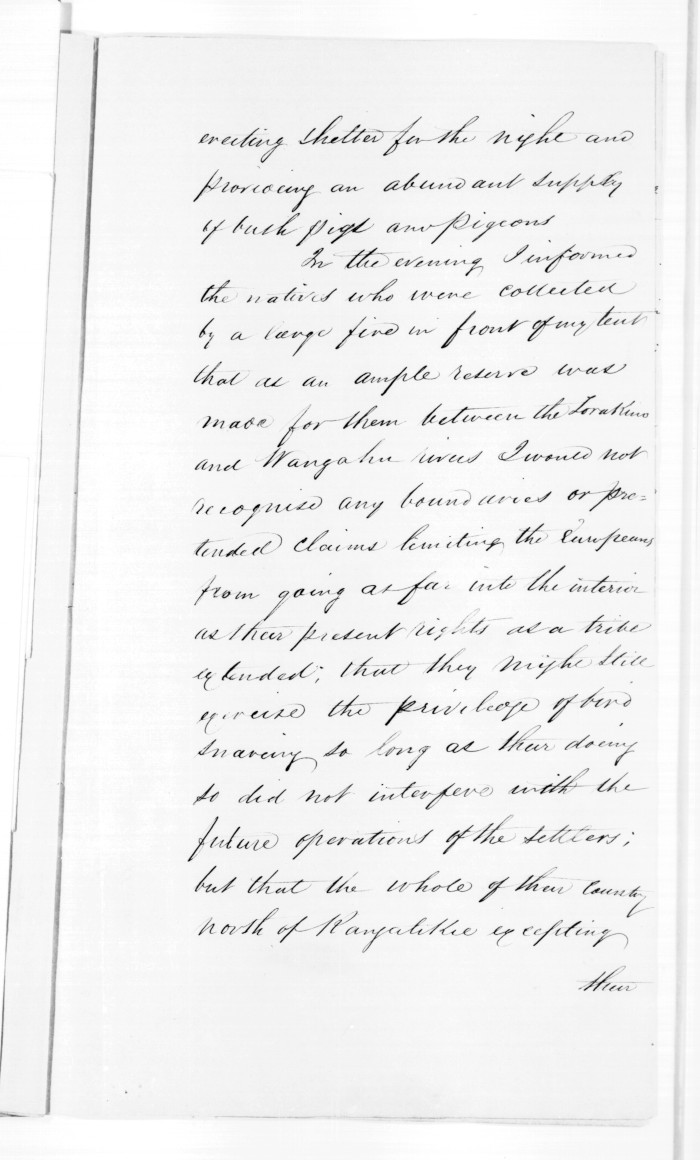 erecting shelter for the night and
providing an abundant supply
of bush pigs and pigeons
In the evening I informed
the natives who were collected
by a large fire in front of my tent
that as an ample reserve was
made for them between the Turakino
and Wangahu rivers I would not
recognise any boundaries or pre=
tended claims limiting the Europeans
from going as far into the interior
as their present rights as a tribe
extended; that they might still
exercise the privilege of bird
snaring so long as their doing
so did not interfere with the
future operations of the settlers;
but that the whole of their country
north of Rangitikie excepting
their